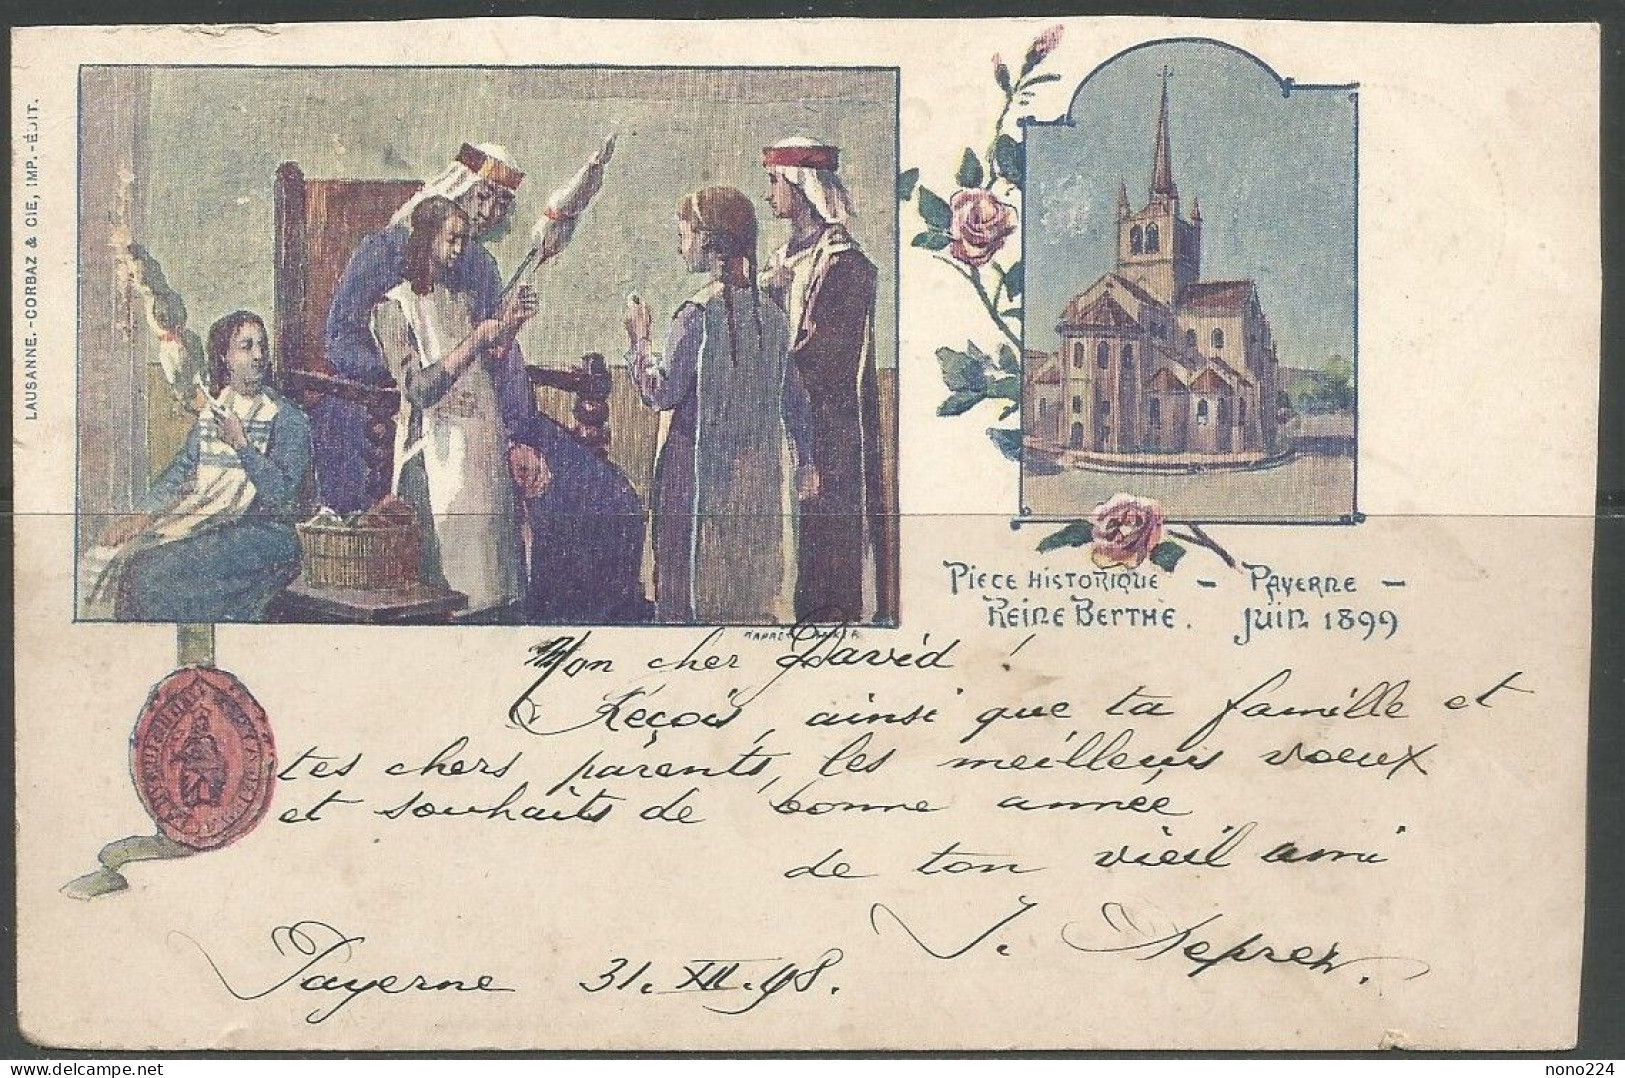 LAUSANNE.-CORBAZ & CIE, IMP.-ÉDIT.
PIECE HISTORIQUE - PAYERNE -
REINE BERTHE. JUIN 1899
D'APRÈS ANKER
Mon cher David !
Reçois, ainsi que ta famille et
tes chers parents, les meilleurs voeux
et souhaits de bonne année
de ton vieil ami
J.
Payerne 31. XII. 98.
nono224